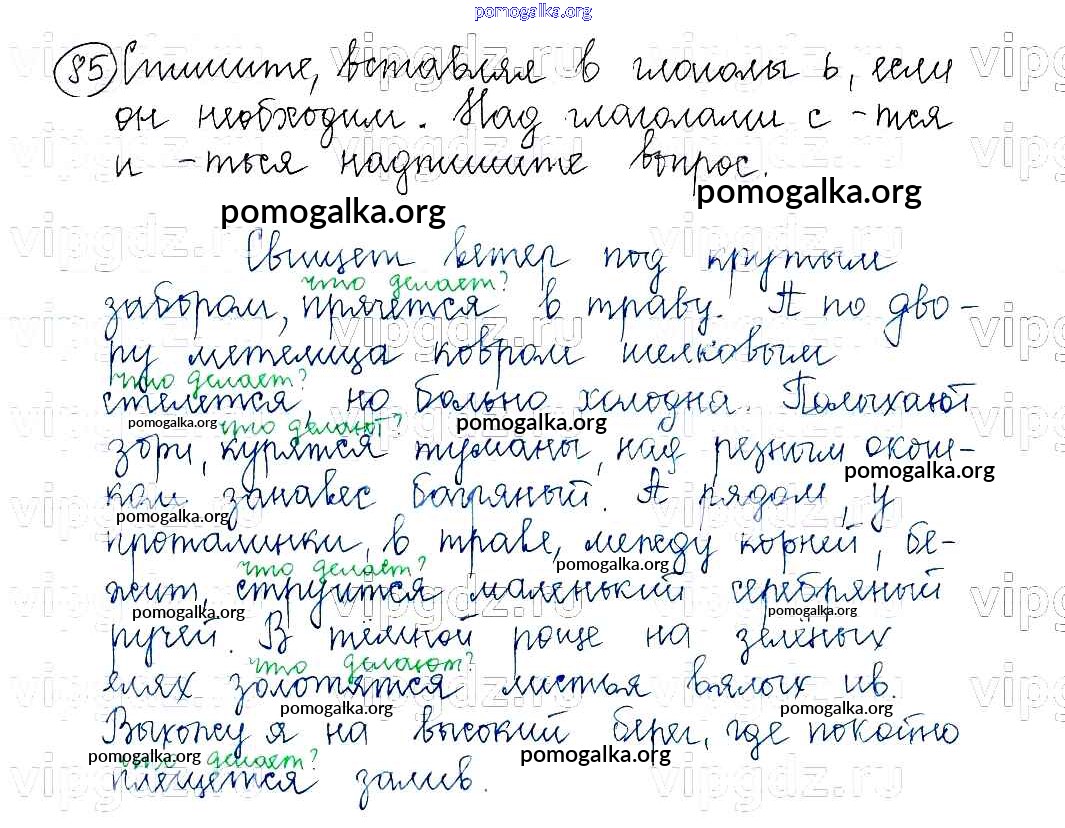 pomogalka.org
85 Спишите, вставляя в глаголы ь, если
он необходим. Над глаголами с -тся
и -ться надпишите вопрос.
pomogalka.org
pomogalka.org
Свищет ветер под крутым
что делает?
забором, прячется в траву. А по дво-
ру метелица ковром шелковым
что делает?
стелется, но больно холодна. Полыхают
pomogalka.org что делают? pomogalka.org
зори, курятся туманы, над резным окош-
pomogalka.org
ком занавес багряный. А рядом, у
pomogalka.org
проталинки, в траве, между корней, бе-
что делает? pomogalka.org
жит, струится маленький серебряный
pomogalka.org pomogalka.org
ручей. В тёмной роще на зелёных
что делают?
елях золотятся листья вялых ив.
pomogalka.org pomogalka.org
Выхожу я на высокий берег, где покойно
что делает? pomogalka.org pomogalka.org
плещется залив.
vipgdz.ru